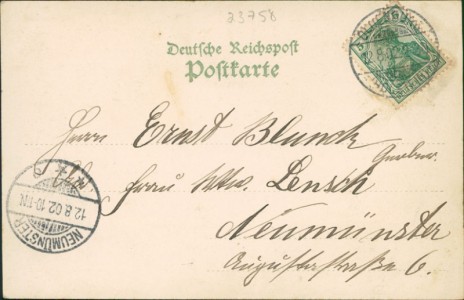 23758
Deutsche Reichspost
Postkarte
Herrn Ernst Blunck
Frau Wwe. Lensch
Neumünster
Augustastraße 6.
NEUMÜNSTER
12.8.02.10-11N.